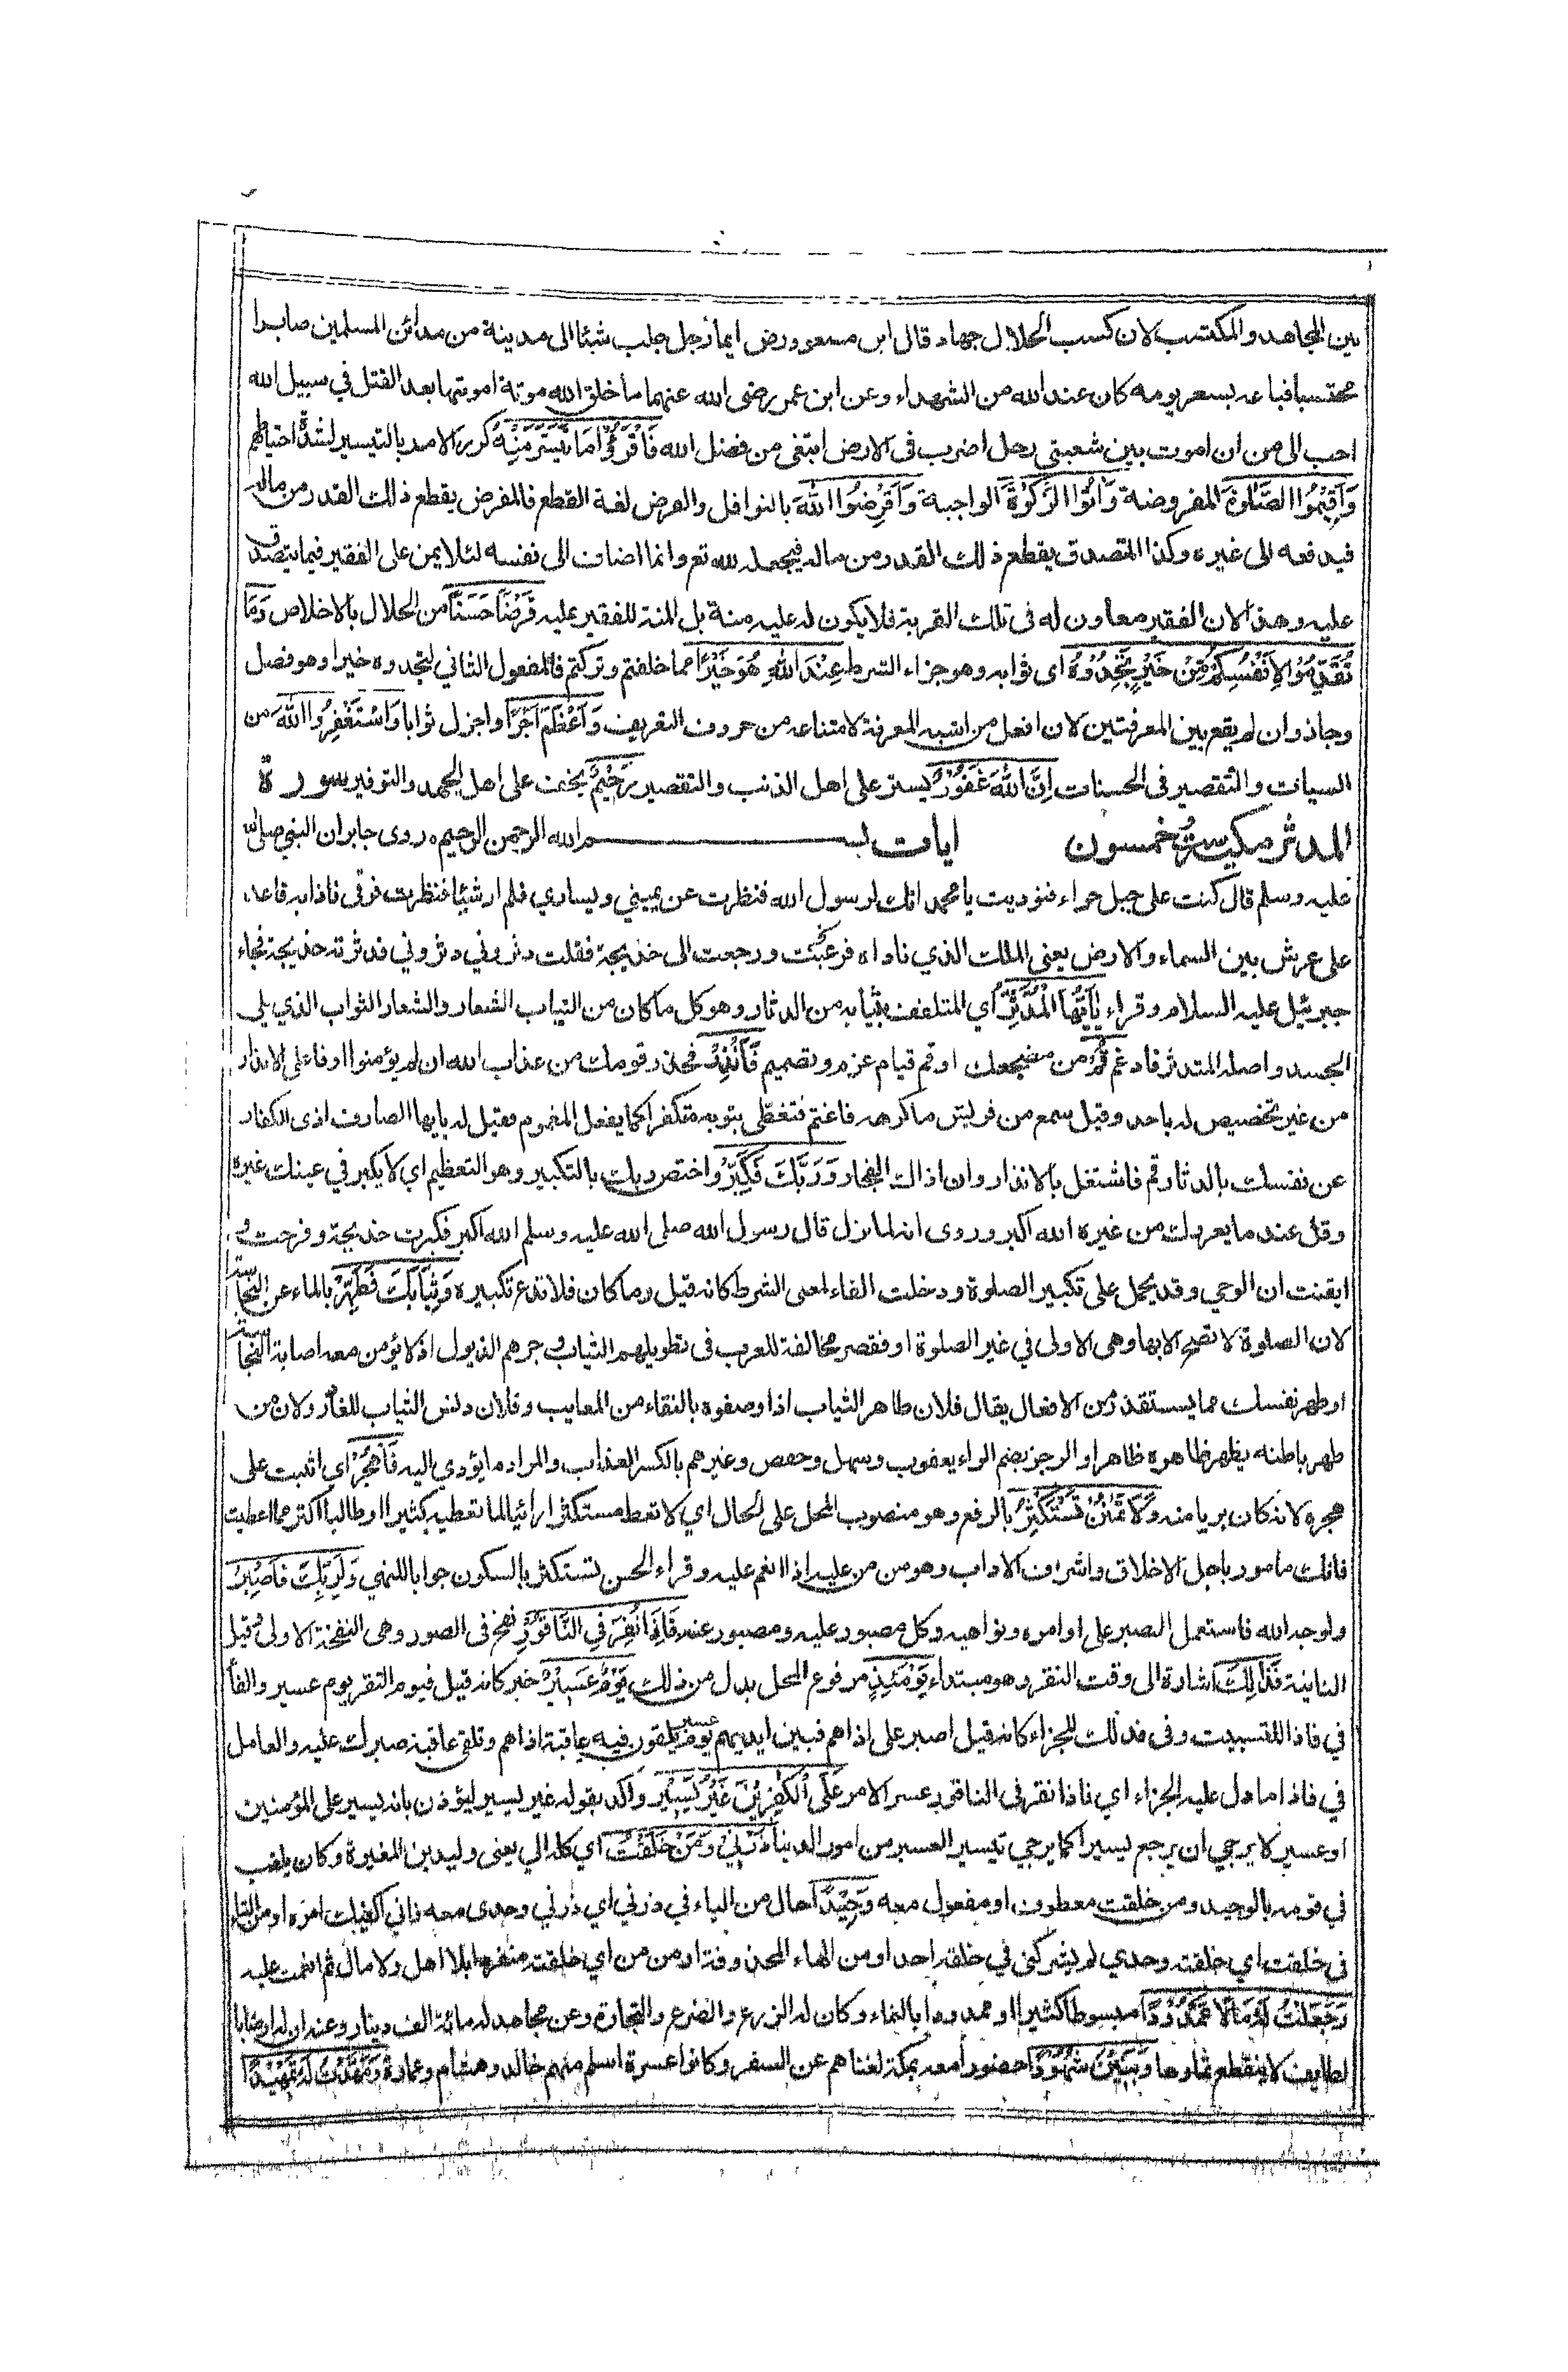 بين المجاهد والمكتسب لان كسب الحلال جهاد قال ابن مسعود رض ايما رجل جلب شيئا الى مدينة من مدائن المسلمين صابرا
محتسبا فباعه بسعر يومه كان عند الله من الشهداء وعن ابن عمر رضى الله عنهما ما خلق الله موتة اموتها بعد القتل في سبيل الله
احب الى من ان اموت بين شعبتي رحل اضرب فى الارض ابتغى من فضل الله فَاقْرَؤُا مَا تَيَسَّرَ مِنْهُ كرر الامر بالتيسير لشدة احتياطهم
وَاَقِيْمُوا الصَّلٰوةَ المفروضة وَاٰتُوا الزَّكٰوةَ الواجبة وَاَقْرِضُوا اللهَ بالنوافل والقرض لغة القطع فالمقرض يقطع ذلك القدر من ماله
فيدفعه الى غيره وكذا المتصدق يقطع ذلك القدر من ماله فيجعله لله تع وانما اضاف الى نفسه لئلا يمن على الفقير فيما يتصدق
عليه وهذا لان الفقير معاون له فى تلك القربة فلا يكون له عليه منة بل المنة للفقير عليه قَرْضًا حَسَنًا من الحلال بالاخلاص وَمَا
تُقَدِّمُوْا لِاَنْفُسِكُمْ مِنْ خَيْرٍ تَجِدُوْهُ اى ثوابه وهو جزاء الشرط عِنْدَ اللهِ هُوَ خَيْرًا مما خلفتم وتركتم فالمفعول الثاني لتجدوه خيرا وهو فصل
وجاز وان لم يقع بين المعرفتين لان افعل من اشبه المعرفة لامتناعه من حروف التعريف وَاَعْظَمَ اَجْرًا واجزل ثوابا وَاسْتَغْفِرُوا اللهَ من
السيات والتقصير فى الحسنات اِنَّ اللهَ غَفُوْرٌ يستر على اهل الذنب والتقصير رَحِيْمٌ يخفف على اهل الجهد والتوفير سورة
المدثر مكية ست وخمسون ايات بسم الله الرحمن الرحيم روى جابر ان النبي صلى الله
عليه وسلم قال كنت على جبل حراء فنوديت يا محمد انك لرسول الله فنظرت عن يميني ويساري فلم ار شيئا فنظرت فوقى فاذا به قاعد
على عرش بين السماء والارض يعنى الملك الذي ناداه فرعبت ورجعت الى خديجة فقلت دثروني دثروني فدثرته خديجة فجاء
جبرئيل عليه السلام وقراء يٰاَيُّهَا الْمُدَّثِّرُ اي المتلفف بثيابه من الدثار وهو كل ما كان من الثياب الشعار والشعار الثواب الذي يلي
الجسد واصله المتدثر فادغم قُمْ من مضجعك او قم قيام عزم وتصميم فَاَنْذِرْ فحذر قومك من عذاب الله ان لم يؤمنوا او فاعلى الانذار
من غير تخصيص له باحد وقيل سمع من قريش ما كرهه فاغتم فتغطى بثوبه متكفرا كما يفعل المغموم فقيل له يايها الصارف اذى الكفار
عن نفسك بالدثار قم فاشتغل بالانذار وان اذاك الفجار وَرَبَّكَ فَكَبِّرْ واختص ربك بالتكبير وهو التعظيم اي لا يكبر في عينك غيره
وقل عند ما يعروك من غيره الله اكبر وروى انه لما نزل قال رسول الله صلى الله عليه وسلم الله اكبر فكبرت خديجة وفرحت و
ايقنت ان الوحي وقد يحمل على تكبير الصلوة ودخلت الفاء لمعنى الشرط كانه قيل وما كان فلا تدع تكبيره وَثِيَابَكَ فَطَهِّرْ بالماء عن النجاسة
لان الصلوة لا تصح الا بها وهى الاولى في غير الصلوة او فقصر مخالفة للعرب فى تطويلهم الثياب وجرهم الذيول اذ لا يؤمن معه اصابة النجاسة
او طهر نفسك مما يستقذر من الافعال يقال فلان طاهر الثياب اذا وصفوه بالنقاء من المعايب وفلان دنس الثياب للغادر ولان من
طهر باطنه يظهر ظاهره ظاهرا والرجز بضم الراء يعقوب وسهل وحفص وغيرهم بالكسر العذاب والمراد ما يؤدي اليه فَاهْجُرْ اي اثبت على
هجره لانه كان بريا منه وَلَا تَمْنُنْ تَسْتَكْثِرُ بالرفع وهو منصوب المحل على الحال اي لا تعط مستكثرا رائيا لما تعطيه كثيرا او طالبا اكثر مما اعطيت
فانك مامور باجل الاخلاق واشرف الاداب وهو من من عليه اذا انعم عليه وقراء الحسن تستكثر بالسكون جوابا للنهي وَلِرَبِّكَ فَاصْبِرْ
ولوجه الله فاستعمل الصبر على اوامره ونواهيه وكل مصبور عليه ومصبور عنه فَاِذَا نُقِرَ فِي النَّاقُوْرِ نفخ فى الصور وهى النفخة الاولى وقيل
الثانية فَذٰلِكَ اشارة الى وقت النقر وهو مبتداء يَوْمَئِذٍ مرفوع المحل بدل من ذلك يَوْمٌ عَسِيْرٌ خبر كانه قيل فيوم النقر يوم عسير والفا
في فاذا للتسبيب وفى فذلك للجزاء كانه قيل اصبر على اذاهم فبين ايديهم يوم عسير يلقون فيه عاقبة اذاهم وتلقى عاقبة صبرك عليه والعامل
في فاذا ما دل عليه الجزاء اي فاذا نقر فى الناقور عسر الامر عَلَى الْكٰفِرِيْنَ غَيْرُ يَسِيْرٍ واكد بقوله غير يسير ليؤذن بانه يسير على المؤمنين
او عسير لا يرجي ان يرجع يسيرا كما يرجي تيسير العسير من امور الدنيا ذَرْنِيْ وَمَنْ خَلَقْتُ اي كله الي يعنى وليد بن المغيرة وكان يلقب
في قومه بالوحيد ومن خلقت معطوف او مفعول معه وَحِيْدًا حال من الياء في ذرني اي ذرني وحدى معه فاني اكفيك امره او من التاء
فى خلقت اي خلقته وحدي لم يشركنى في خلقه احد او من الهاء المحذوفة او من من اي خلقته منفردا بلا اهل ولا مال ثم انعمت عليه
وَجَعَلْتُ لَهُ مَالًا مَمْدُوْدًا مبسوطا كثيرا او ممدودا بالنماء وكان له الزرع والضرع والتجارة وعن مجاهد له مائة الف دينار وعنه ان له ارضا با
لطايف لا ينقطع ثمارها وَبَنِيْنَ شُهُوْدًا حضورا معه بمكة لغناهم عن السفر وكانوا عشرة اسلم منهم خالد وهشام وعمارة وَمَهَّدْتُ لَهُ تَمْهِيْدًا